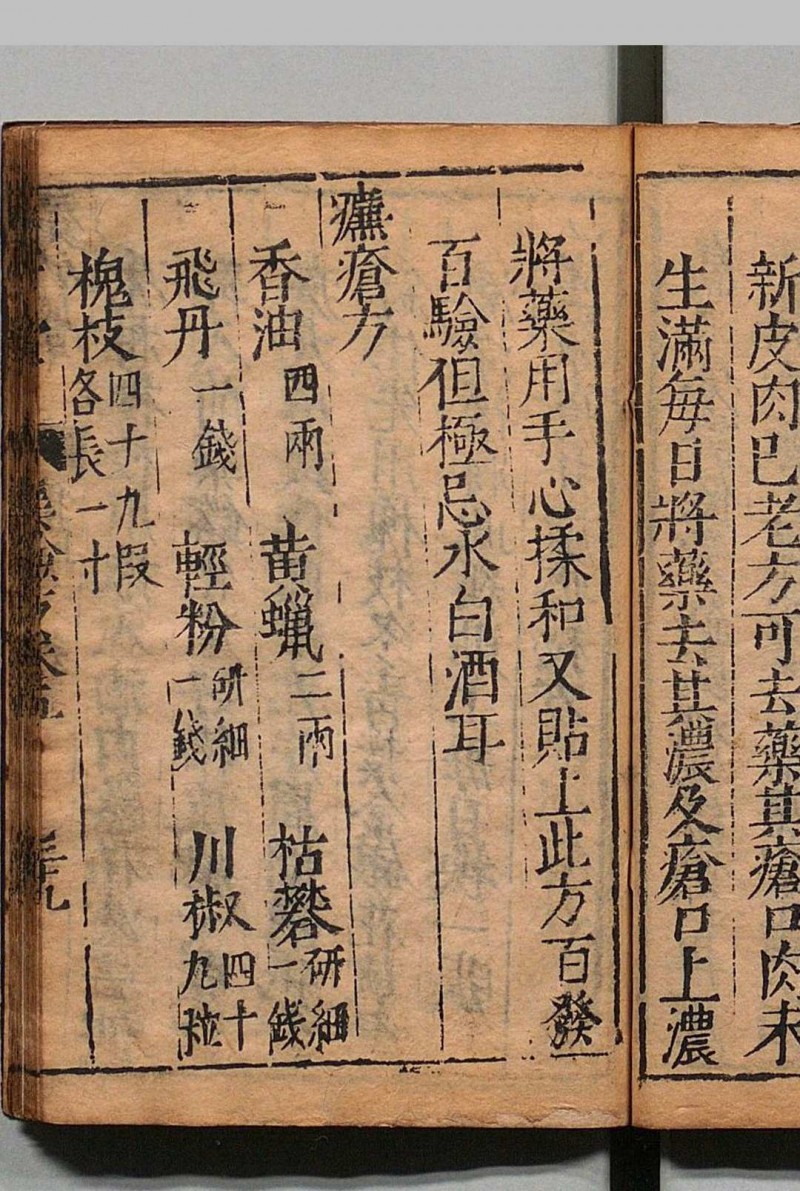 新皮肉已老方可去藥其瘡口肉未
生滿每日將藥去其濃及瘡口上濃
將藥用手心揉和又貼上此方百發
百驗但極忌水白酒耳
癰瘡方
香油四兩 黄蠟二兩 枯礬研細一錢
飛丹一錢 輕粉研細一錢 川椒四十九粒
槐枝四十九假各長一寸